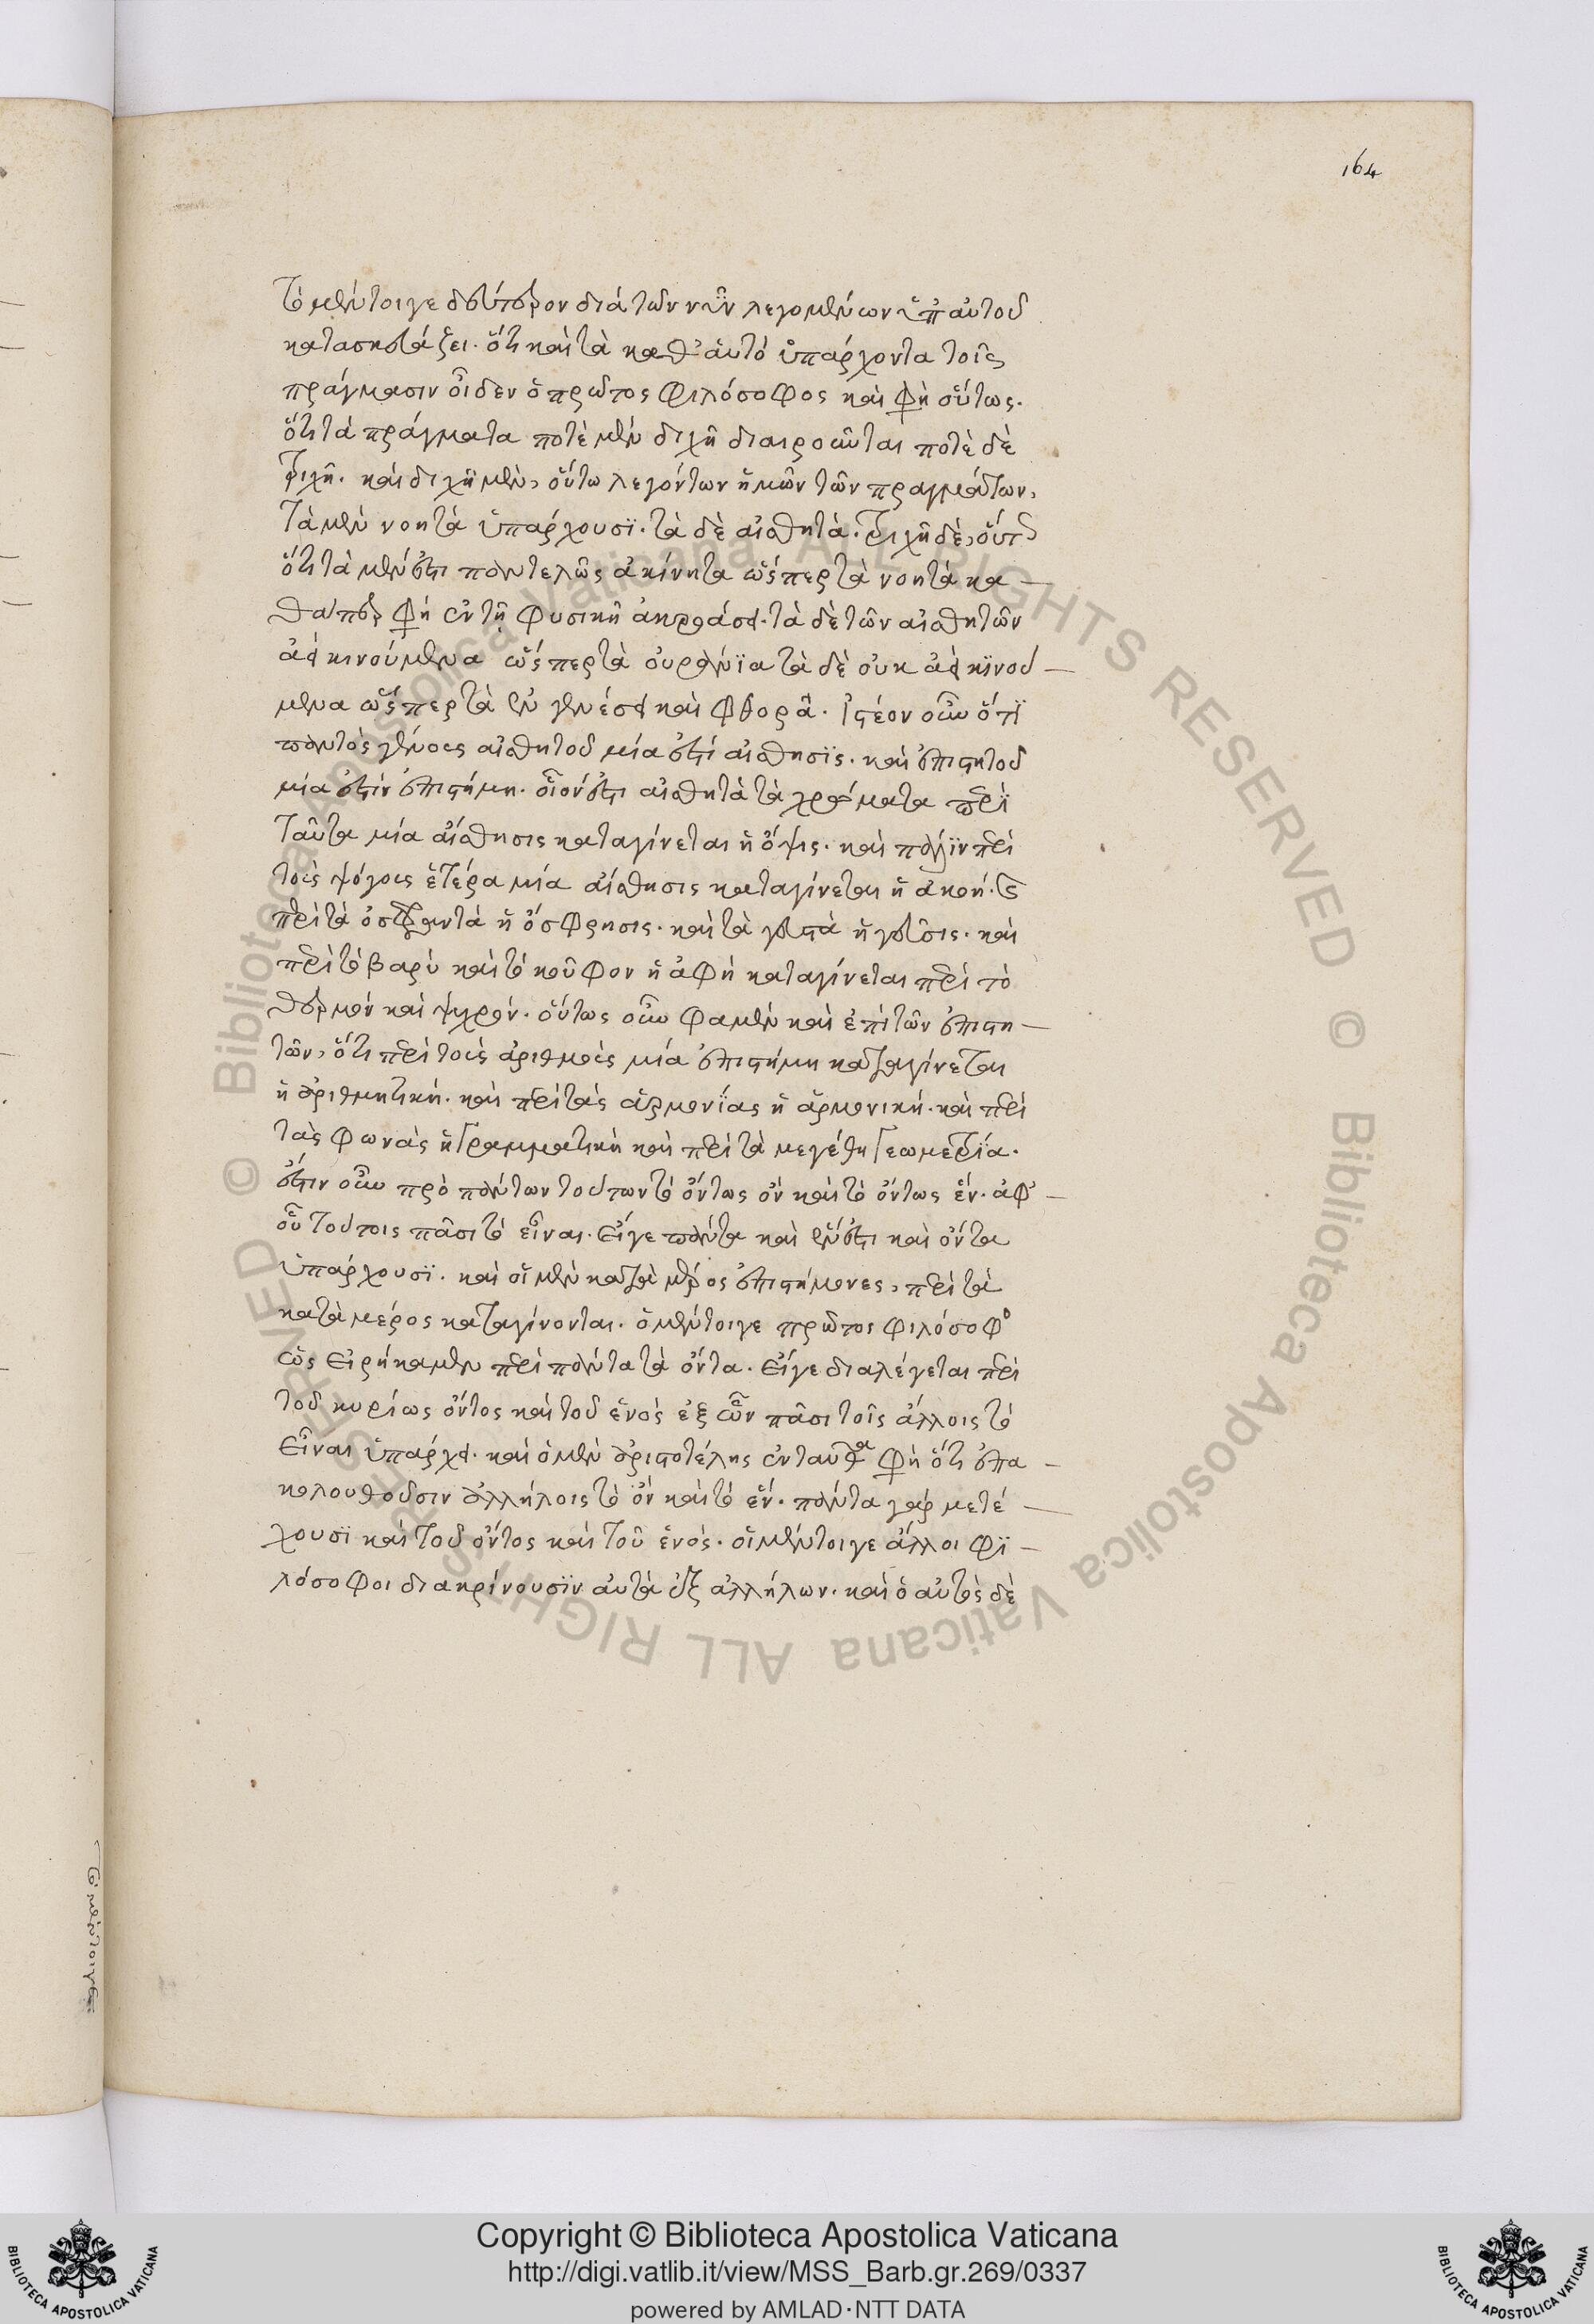 164
τὸ μέντοιγε δεύτερον διὰ τῶν νῦν λεγομένων ὑπ' αὐτοῦ
κατασκευάζει. ὅτι καὶ τὰ καθ' αὑτὸ ὑπάρχοντα τοῖς
πράγμασιν οἶδεν ὁ πρῶτος φιλόσοφος καὶ φη οὕτως.
ὅτι τὰ πράγματα ποτὲ μὲν διχῆ διαιροῦνται ποτὲ δὲ
τριχῆ. καὶ διχῆ μὲν, οὕτω λεγόντων ἡμῶν τῶν πραγμάτων,
τὰ μὲν νοητὰ ὑπάρχουσϊ. τὰ δὲ αἰσθητά. τριχῆ δὲ, οὕτ
ὅτι τὰ μέν ἐστι παντελῶς ἀκίνητα ὥσπερ τὰ νοητὰ κα —
θάπερ φη ἐν τῆ φυσικῆ ἀκροάσει. τὰ δὲ τῶν αἰσθητῶν
ἀεὶ κινούμενα ὥσπερ τὰ οὐράνϊα τὰ δὲ οὐκ ἀεὶ κϊνού —
μενα ὥσπερ τὰ ἐν γενέσει καὶ φθορᾶ. ἰστέον οὖν ὅτϊ
παντὸς γένους αἰσθητοῦ μία ἐστὶ αἴσθησϊς. καὶ ἐπιστητοῦ
μία ἐστὶν ἐπιστήμη. οἷόν ἐστι αἰσθητὰ τὰ χρώματα περὶ
ταῦτα μία αἴσθησις καταγίνεται ἡ ὄψις. καὶ πάλϊν περὶ
τοὺς ψόφους ἑτέρα μία αἴσθησις καταγίνεται ἡ ἀκοή. καὶ
περὶ τὰ ὀσφραντὰ ἡ ὄσφρησις. καὶ τὰ γευστὰ ἡ γεῦσις. καὶ
περὶ τὸ βαρὺ καὶ τὸ κοῦφον ἡ ἁφὴ καταγίνεται περὶ τὸ
θερμὸν καὶ ψυχρόν. οὕτως οὖν φαμὲν καὶ ἐπὶ τῶν ἐπιστη —
τῶν, ὅτι περὶ τοὺς ἀριθμοὺς μία ἐπιστήμη καταγίνεται
ἡ ἀριθμητική. καὶ περὶ τὰς ἁρμονϊας ἡ ἁρμονική. καὶ περὶ
τὰς φωνὰς ἡ γραμματικὴ καὶ περὶ τὰ μεγέθη γεωμετρϊα.
ἔστιν οὖν πρὸ πάντων τούτων τὸ ὄντως ὂν καὶ τὸ ὄντως ἕν. ἀφ' —
οὗ τούτοις πᾶσι τὸ εἶναι. εἴγε πάντα καὶ ἕν ἐστι καὶ ὄντα
ὑπάρχουσϊ. καὶ οἱ μὲν κατὰ μέρος ἐπιστήμονες, περὶ τὰ
κατὰ μέρος καταγίνονται. ὁ μέντοιγε πρῶτος φιλόσοφο
ὡς εἰρήκαμεν περὶ πάντα τὰ ὄντα. εἴγε διαλέγεται περὶ
τοῦ κυρίως ὄντος καὶ τοῦ ἑνὸς ἐξ ὧν πᾶσι τοῖς ἄλλοις τὸ
εἶναι ὑπάρχει. καὶ ὁ μὲν ἀριστοτέλης ἐνταῦθα φη ὅτι ἐπα —
κολουθοῦσιν ἀλλήλοις τὸ ὂν καὶ τὸ ἕν. πάντα γὰρ μετέ —
χουσϊ καὶ τοῦ ὄντος καὶ τοῦ ἑνός. οἱ μέντοιγε ἄλλοι φϊ —
λόσοφοι διακρίνουσϊν αὐτὰ ἐξ ἀλλήλων. καὶ ὁ αὐτὸς δὲ
© Biblioteca Apostolica Vaticana ALL RIGHTS RESERVED © Biblioteca Apostolica Vaticana ALL RIGHTS RESERVED
Copyright © Biblioteca Apostolica Vaticana
http://digi.vatlib.it/view/MSS_Barb.gr.269/0337
powered by AMLAD·NTT DATA
BIBLIOTECA APOSTOLICA VATICANA
BIBLIOTECA APOSTOLICA VATICANA